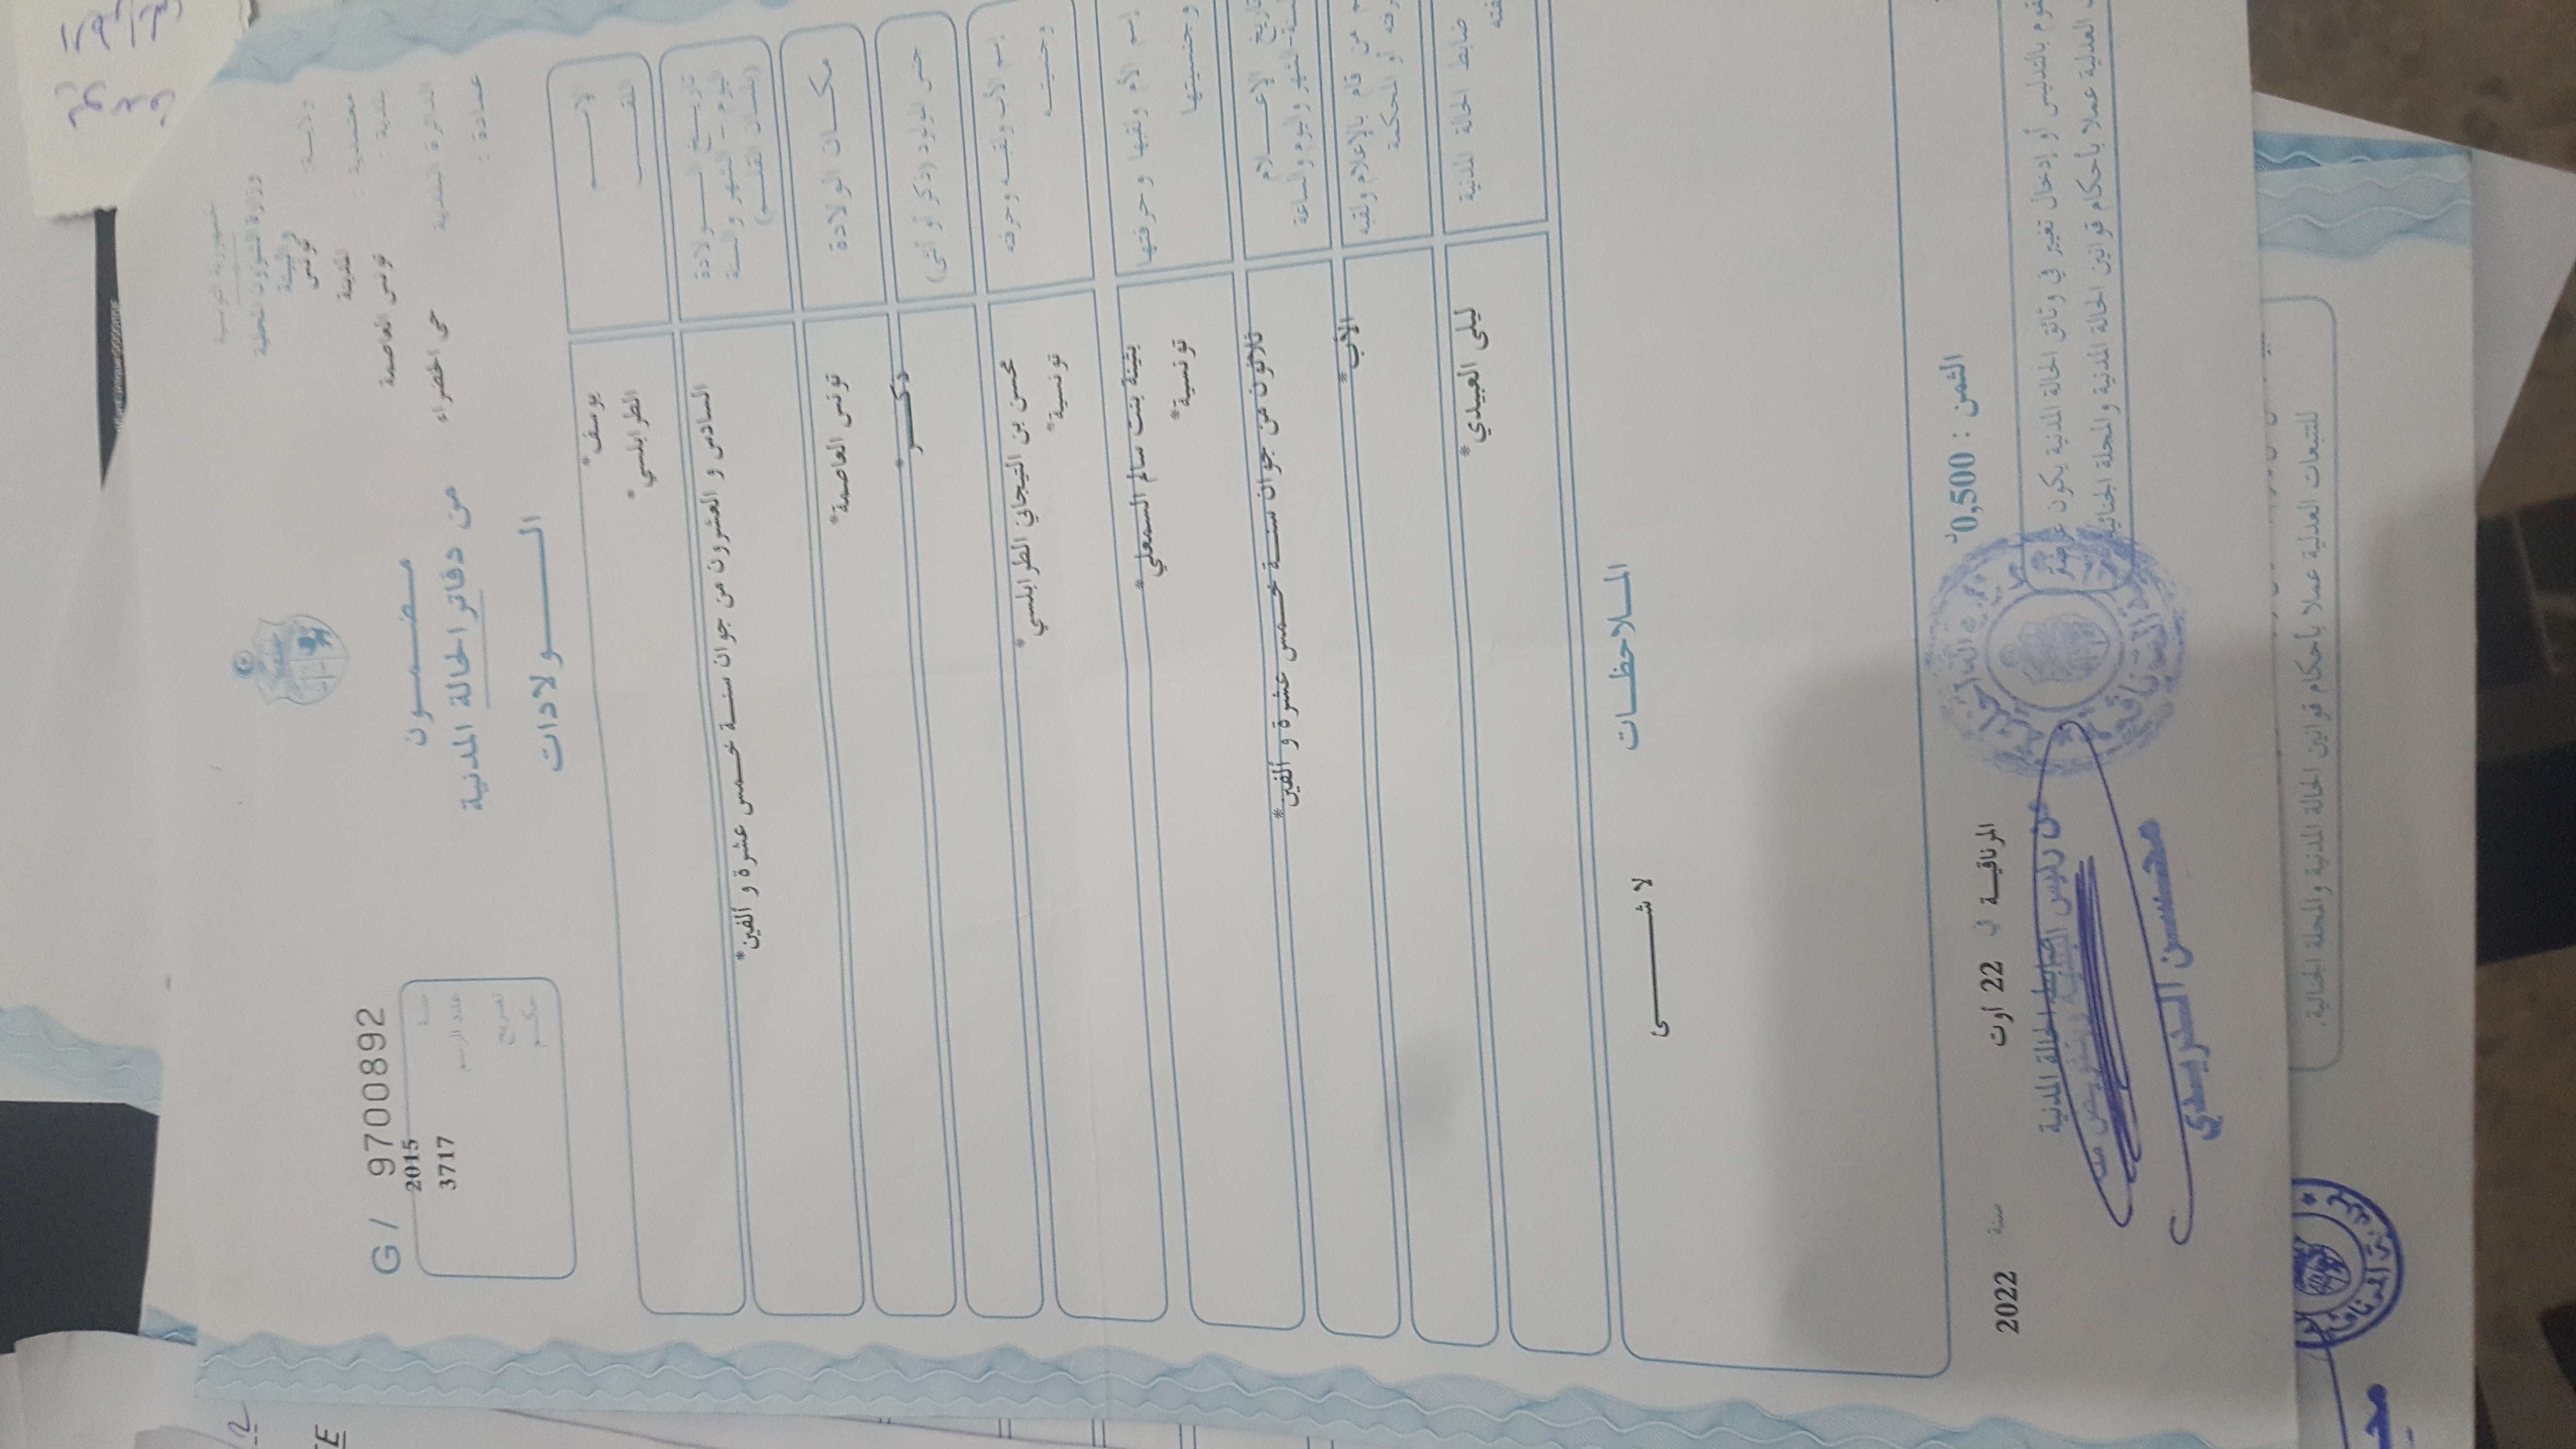 الجمهورية التونسية
وزارة الشؤون المحلية
والبيئة
ولاية: تونس
معتمدية: المدينة
بلدية: تونس العاصمة
الدائرة البلدية حي الخضراء
عمادة:
مضمون
من دفاتر الحالة المدنية
الولادات
G/ 9700892
سنة 2015
عدد الرسم 3717
تصريح
حكم
الاسم يوسف*
اللقب الطرابلسي*
تاريخ الولادة السادس و العشرون من جوان سنة خمس عشرة و ألفين*
اليوم - الشهر والسنة
(بلسان القلم)
مكان الولادة تونس العاصمة*
جنس المولود (ذكر أو أنثى) ذكر*
إسم الأب ولقبه وحرفته محسن بن التيجاني الطرابلسي*
وجنسيته تونسية*
إسم الأم ولقبها وحرفتها بثينة بنت سالم السمعلي*
وجنسيتها تونسية*
تاريخ الإعلام ثلاثون من جوان سنة خمس عشرة و ألفين*
السنة-الشهر واليوم والساعة
من قام بالإعلام ولقبه الأب*
أو المحكمة
ضابط الحالة المدنية ليلى العبيدي*
الملاحظات
لا شئ
الثمن : 0,500د
المرناقية في 22 أوت سنة 2022
ضابط الحالة المدنية
محسن الدريدي
بالتدليس أو إدخال تغيير في وثائق الحالة المدنية يكون عرضة
العدلية عملا بأحكام قوانين الحالة المدنية والمجلة الجنائية
للتتبعات العدلية عملا بأحكام قوانين الحالة المدنية والمجلة الجنائية.